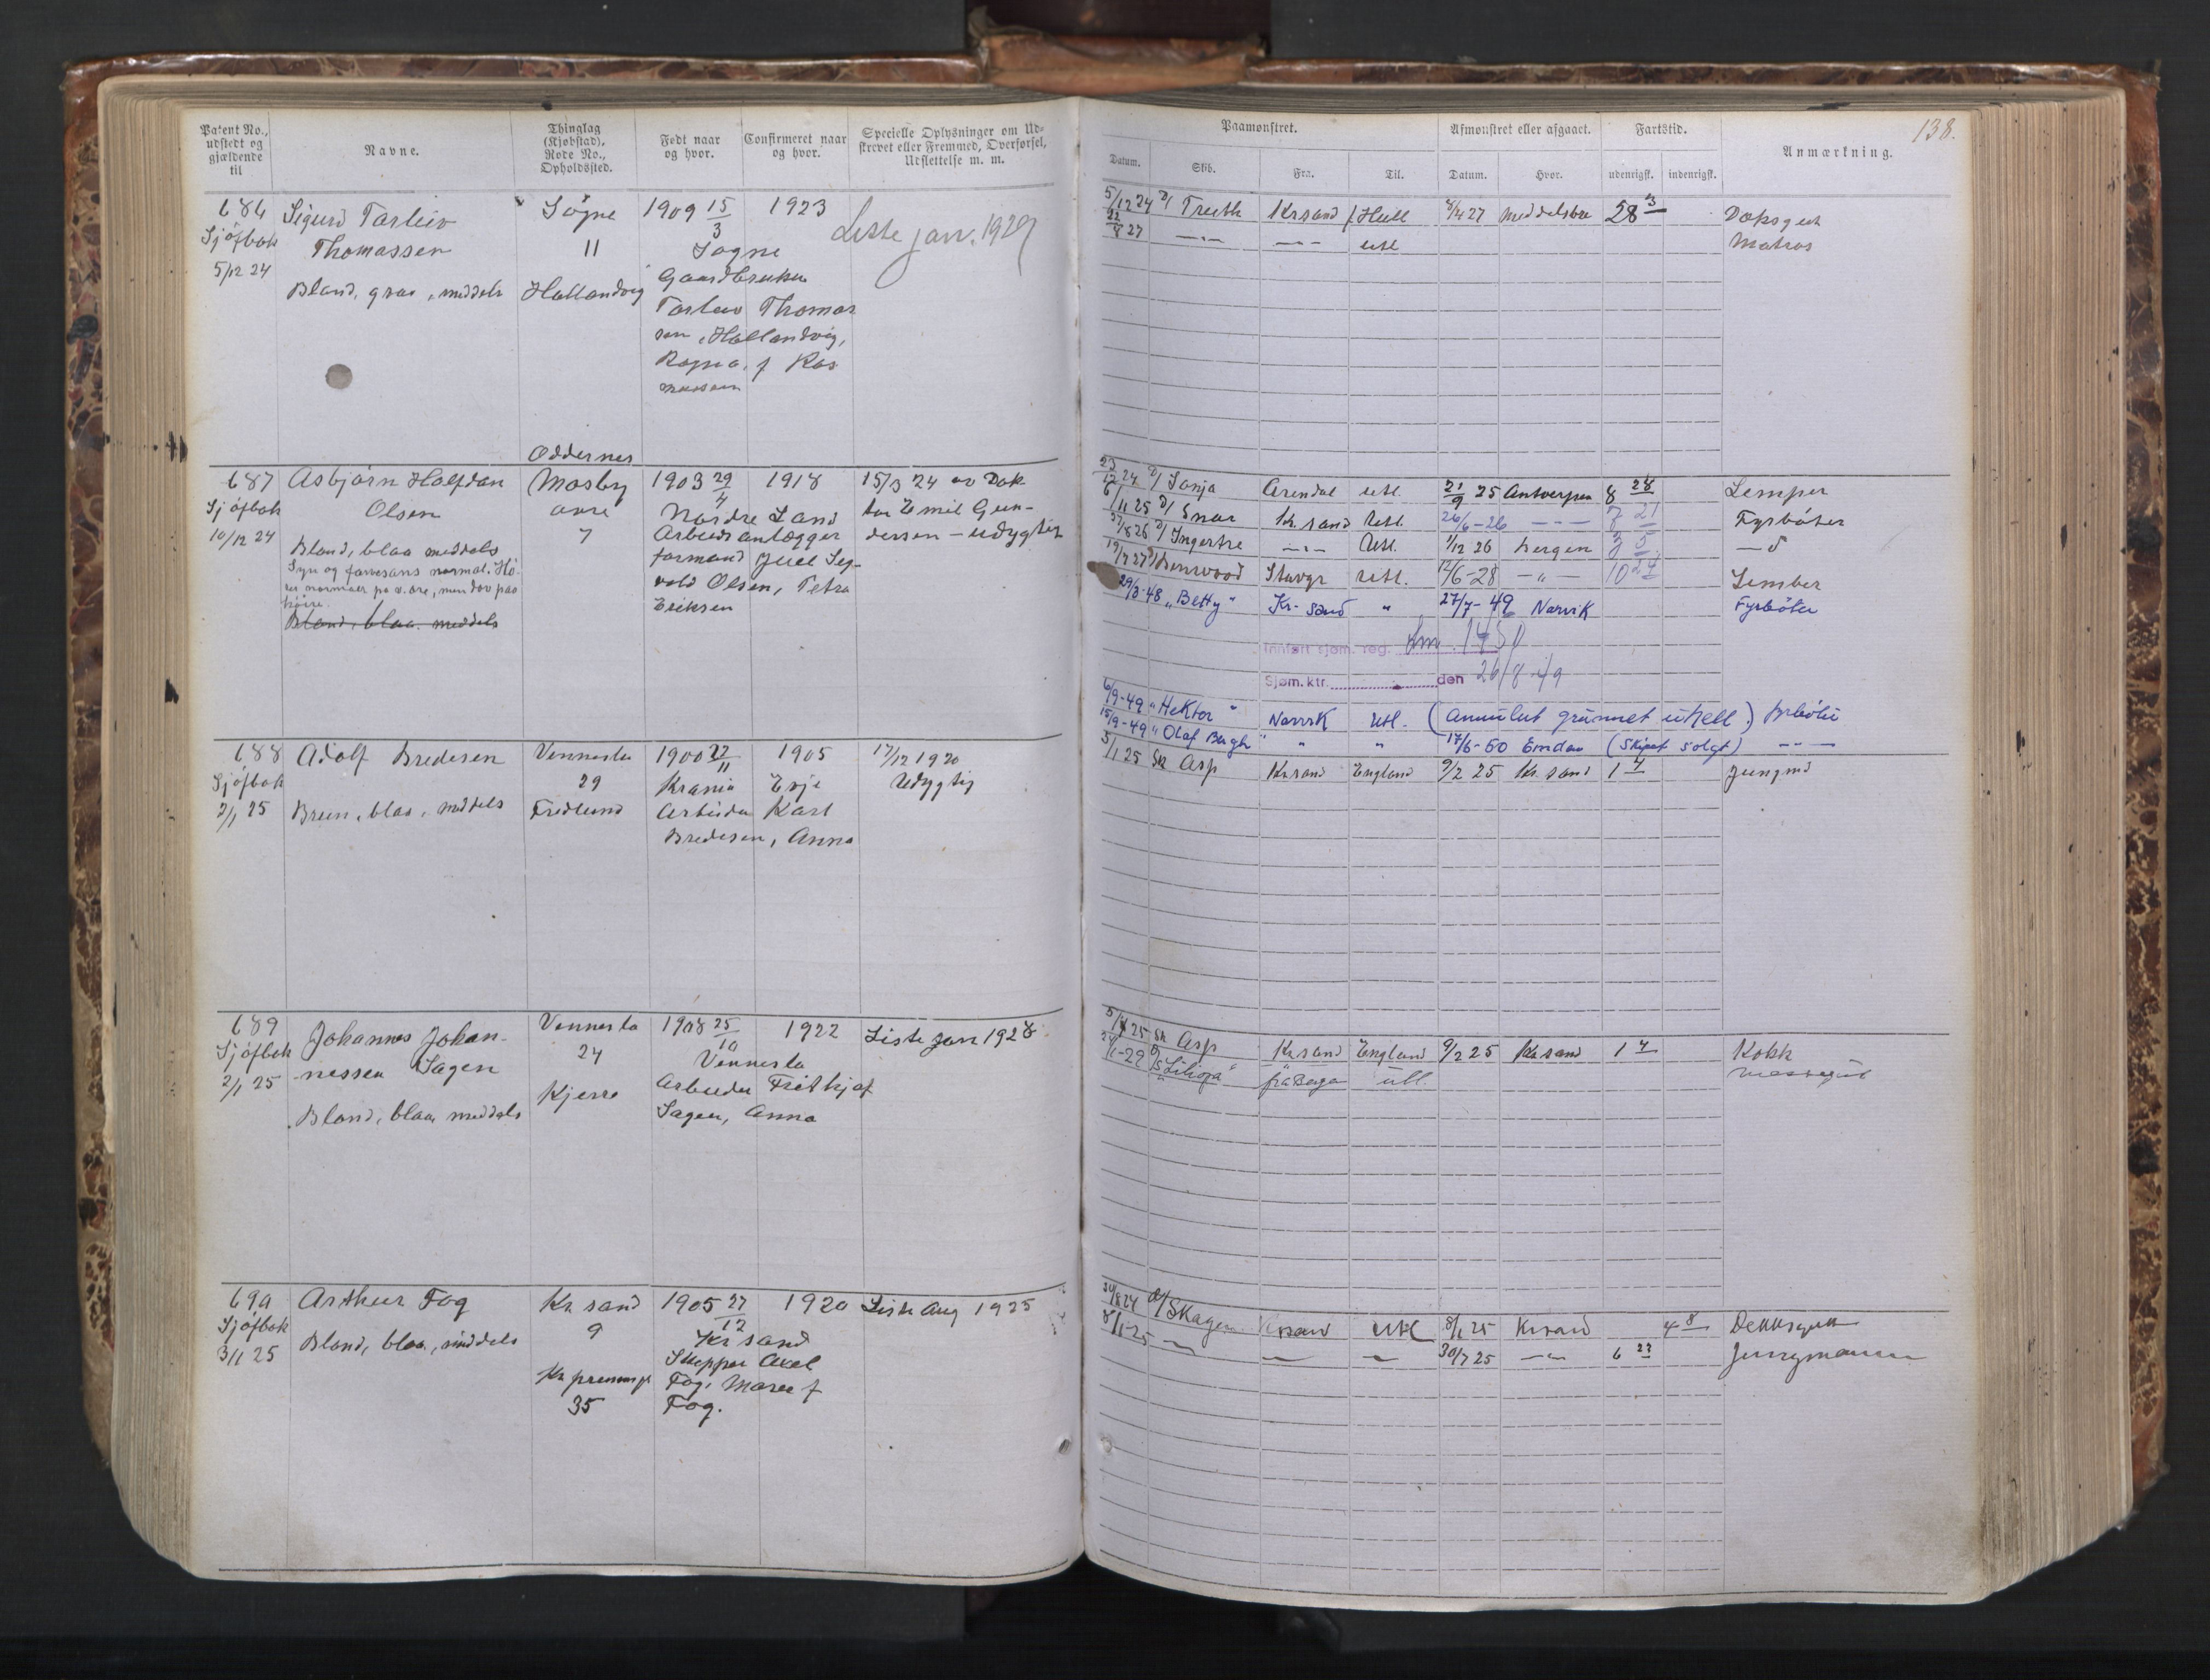 Patent No., udstedt og gjældende til
Navne.
Thinglag (Kjøbstad), Rode No., Opholdssted.
Født naar og hvor.
Confirmeret naar og hvor.
Specielle Oplysninger om Udskrevet eller Fremmed, Overførsel, Udslettelse m. m.
Paamønstret.
Afmønstret eller afgaaet.
Fartstid.
Anmærkning.
138.
Datum. Skib. Fra. Til. Datum. Hvor. udenrigsk. indenrigsk.
686 Sigurd Torleiv Søgne 1909 15/3 1923
Sjøfbok Thomassen 11 Søgne Liste jan. 1929
5/12 24 Gaardbruker
Blond, graa, middels Hallandvig
Torleiv Thomas
sen, Hallandvig,
Ragna, f Ras
mussen
5/12 24 D/ Truth Krsand f Hull 8/4 27 Middelsbro 28 3 Dæksgut
22/8 27 —„— —„— utl Matros
Oddernes
687 Asbjørn Halfdan Mosby 1903 29/4 1918 15/3 24 av Dok
Sjøfbok Olsen øvre Nordre Land tor Emil Gun-
10/12 24 7 Arbeidsanlægger dersen – udygtig
Blond, blaa middels formand Juel Sig-
Syn og farvesans normal. Hø-
rer normalt på v. øre, men døv paa
høire.
vald Olsen, Petra
Eriksen
Blond, blaa middels
23/12 24 D/ Sonja Arendal utl. 21/9 25 Antwerpen 8 28 Lemper
6/11 25 D/ Snar Kr. sand Utl. 26/6-26 — — — 7 21 Fyrbøter
27/8 26 D/ Ingertre —„— Utl. 1/12 26 Bergen 3 5
19/7 27 Benwood Stavgr utl. 12/6-28 —„— 10 24 Lember
29/3-48 „Betty" Kr-sand „ 27/7-49 Narvik Fyrbøter
Innført sjøm. reg. 1450
Sjøm. ktr. den 26/8-49
6/9-49 „Hektor" Narvik Utl. (Annulert grunnet uhell) Fyrbøter
15/9-49 „Olaf Bergh" „ „ 17/6-50 Emden (Skipet solgt) — —
688 Adolf Bredesen Vennesla 1900 22/11 1905 17/12 1920
Sjøfbok 29 Krania Evje Udygtig
2/1 25 Brun, blaa, middels Fredlund Arbeider Karl
Bredesen, Anna
5/1 25 Sk Asp Krsand England 9/2 25 Kr. sand 1 4 Jungmd
689 Johannes Johan- Vennesla 1908 25/10 1922 Liste jan 1928
Sjøfbok nessen Sagen 24 Vennesla
2/1 25 Kjerre Arbeider Frithjof
Blond, blaa, middels Sagen, Anna
5/1 25 Sk Asp Krsand England 9/2 25 Krsand 1 4 Kokk
fra Berge utl. messegut
690 Arthur Fog Kr. sand 1905 27/12 1920 Liste Aug 1925
Sjøfbok 9 Kr sand
3/1 25 Blond, blaa, middels Skipper Axel
Fog, Maren f
35 Fog.
D/ Skagen Krsand Utl 8/1 25 Krsand 4 8 Dekksgutt
8/1-25 — — — 30/7 25 —„— 6 22 Jungmann